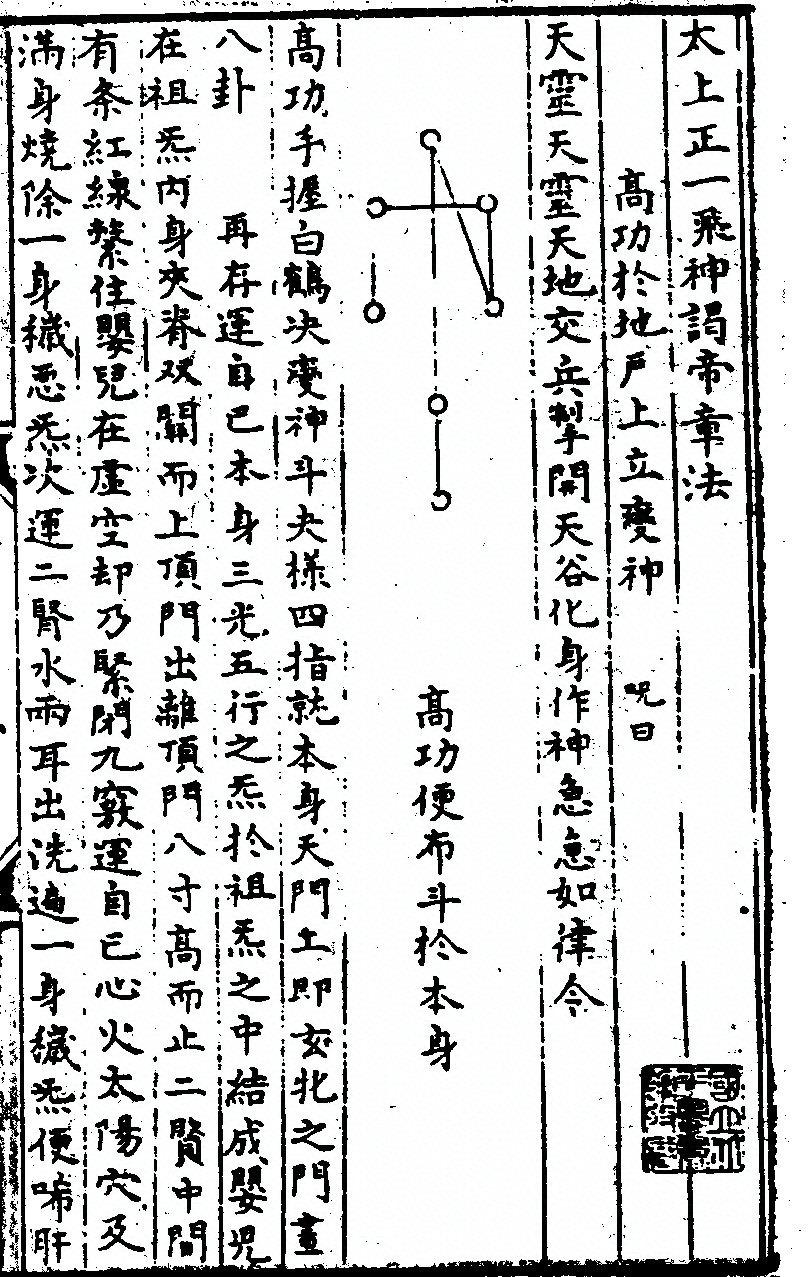 太上正一飛神謁帝章法
高功於地戶上立變神　呪曰
天靈天靈天地交兵掣開天谷化身作神急急如律令
高功便布斗於本身
高功手握白鶴决變神斗夬樣四指就本身天門上即玄牝之門畫
八卦　再存運自己本身三光五行之炁於祖炁之中結成嬰児
在祖炁内身夾脊双關而上頂門出離頂門八寸高而止二腎中間
有条紅線繫住嬰児在虚空却乃緊閉九竅運自己心火太陽穴及
滿身燒除一身穢恶炁次運二腎水兩耳出洗遍一身穢炁便唏肝